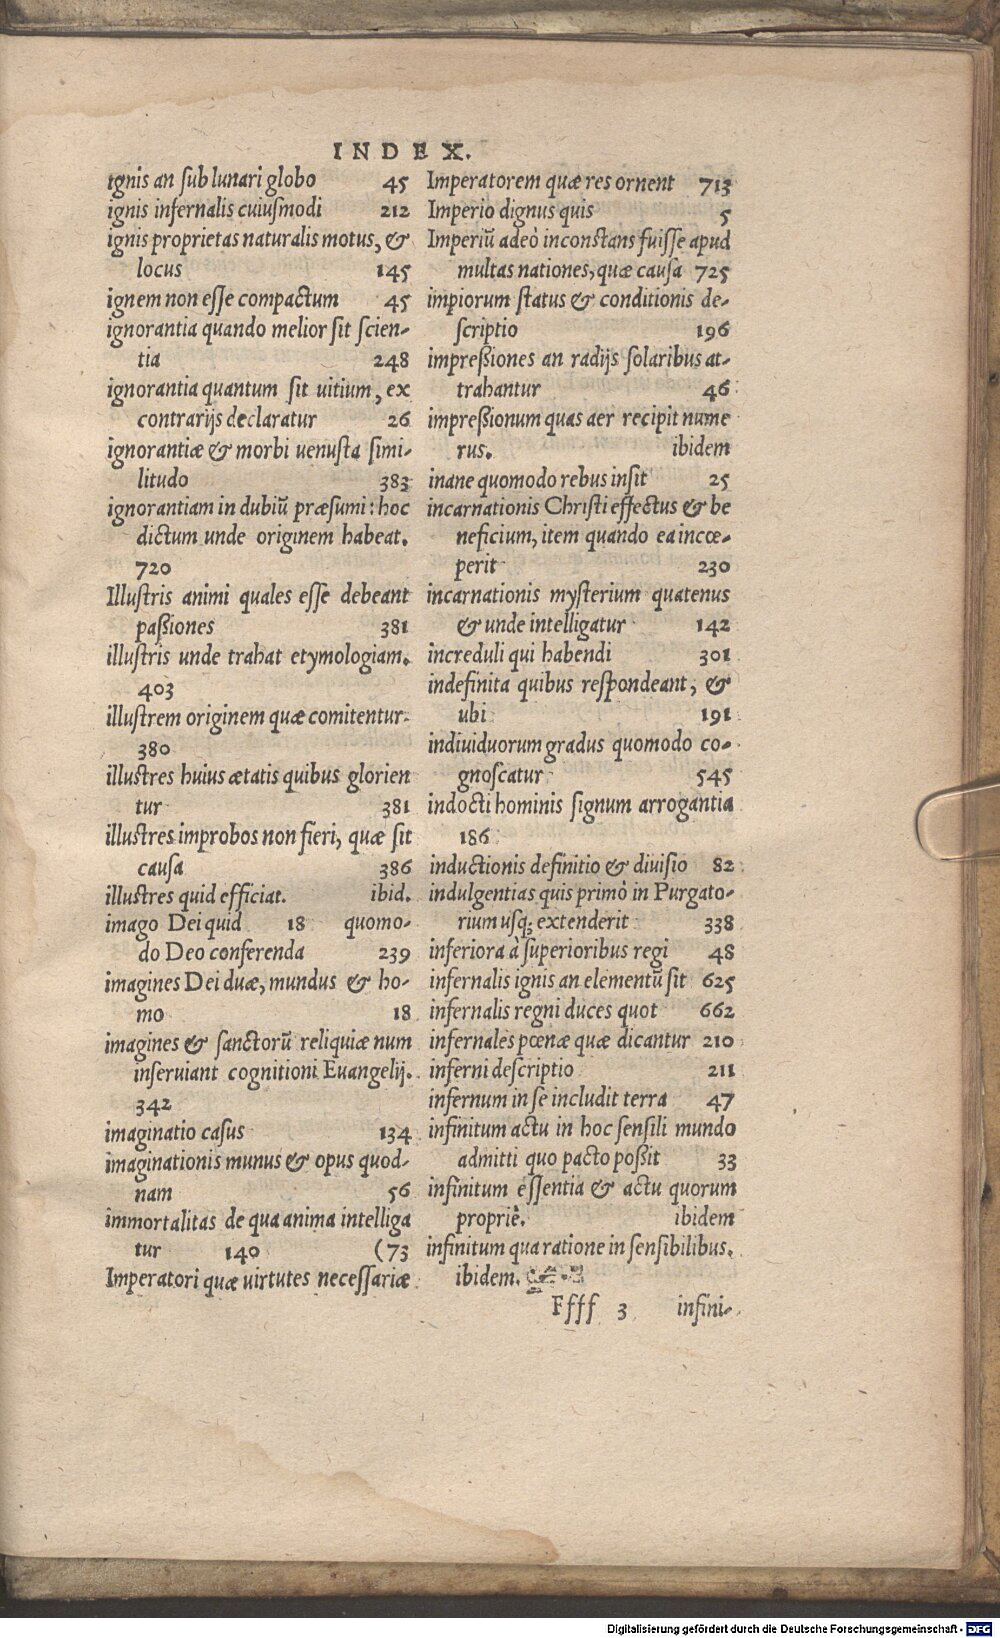 INDEX.
ignis an sub lunari globo 45
ignis infernalis cuiusmodi 212
ignis proprietas naturalis motus, &
locus 145
ignem non esse compactum 45
ignorantia quando melior sit scien-
tia 248
ignorantia quantum sit uitium, ex
contrarijs declaratur 26
ignorantiæ & morbi uenusta simi-
litudo 383
ignorantiam in dubiũ præsumi: hoc
dictum unde originem habeat.
720
Illustris animi quales esse debeant
paßiones 381
illustris unde trahat etymologiam.
403
illustrem originem quæ comitentur.
380
illustres huius ætatis quibus glorien
tur 381
illustres improbos non fieri, quæ sit
causa 386
illustres quid efficiat. ibid.
imago Dei quid 18 quomo-
do Deo conferenda 239
imagines Dei duæ, mundus & ho-
mo 18
imagines & sanctorũ reliquiæ num
inseruiant cognitioni Euangelij.
342
imaginatio casus 134
imaginationis munus & opus quod-
nam 56
immortalitas de qua anima intelliga
tur 140 (73
Imperatori quæ uirtutes necessariæ
Imperatorem quæ res ornent 713
Imperio dignus quis 5
Imperiũ adeò inconstans fuisse apud
multas nationes, quæ causa 725
impiorum status & conditionis de-
scriptio 196
impreßiones an radijs solaribus at-
trahantur 46
impreßionum quas aer recipit nume
rus. ibidem
inane quomodo rebus insit 25
incarnationis Christi effectus & be
neficium, item quando ea incœ-
perit 230
incarnationis mysterium quatenus
& unde intelligatur 142
increduli qui habendi 301
indefinita quibus respondeant, &
ubi 191
indiuiduorum gradus quomodo co-
gnoscatur 545
indocti hominis signum arrogantia
186
inductionis definitio & diuisio 82
indulgentias quis primò in Purgato-
rium usq; extenderit 338
inferiora à superioribus regi 48
infernalis ignis an elementũ sit 625
infernalis regni duces quot 662
infernales pœnæ quæ dicantur 210
inferni descriptio 211
infernum in se includit terra 47
infinitum actu in hoc sensili mundo
admitti quo pacto poßit 33
infinitum essentia & actu quorum
propriè. ibidem
infinitum qua ratione in sensibilibus.
ibidem.
Ffff 3 infini-
Digitalisierung gefördert durch die Deutsche Forschungsgemeinschaft - DFG